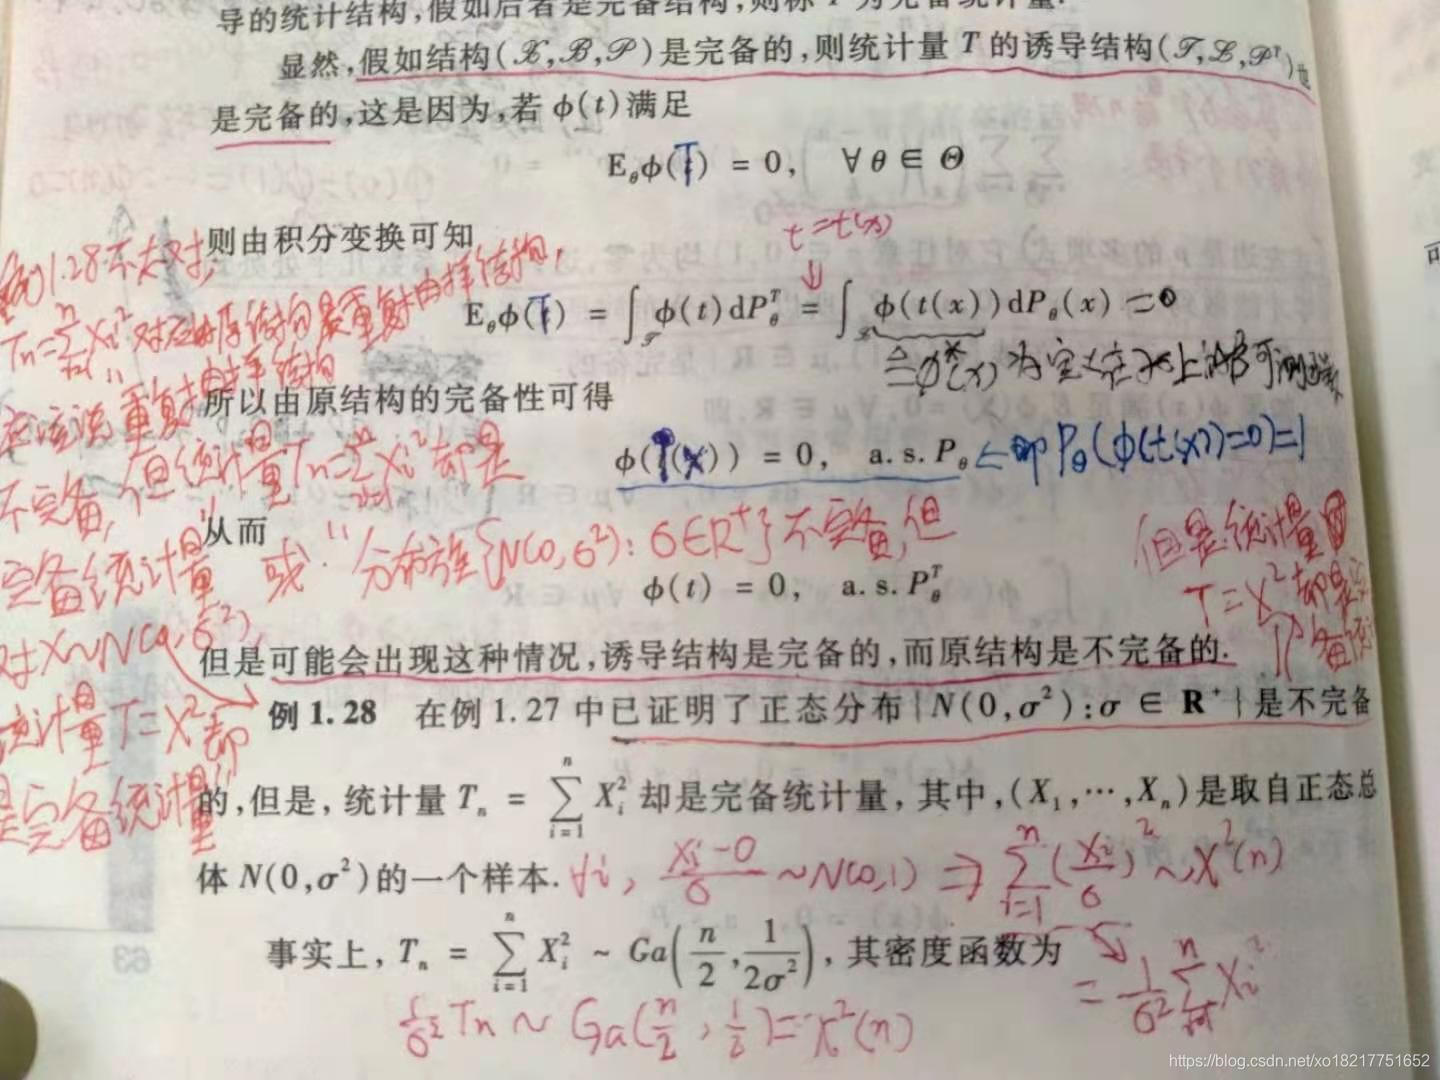 导的统计结构,假如后者是完备结构,则称 T 为完备统计量.
显然,假如结构(𝒳,ℬ,𝒫)是完备的,则统计量 T 的诱导结构(𝒯,ℒ,𝒫ᵀ)也
是完备的,这是因为,若 ϕ(t)满足
E_θϕ(T) = 0, ∀ θ ∈ Θ
则由积分变换可知
t=t(x)
E_θϕ(T) = ∫_𝒯 ϕ(t)dP_θ^T = ∫_𝒳 ϕ(t(x))dP_θ(x) =0
≜ϕ*(x) 为定义在𝒳上的ℬ可测函数
所以由原结构的完备性可得
ϕ(T(x)) = 0, a.s.P_θ ⇐即 P_θ(ϕ(t(x))=0)=1
从而
或"分布族{N(0,σ²):σ∈R⁺}不完备,但
ϕ(t) = 0, a.s.P_θ^T
但是可能会出现这种情况,诱导结构是完备的,而原结构是不完备的.
例 1.28 在例 1.27 中已证明了正态分布{N(0,σ²):σ ∈ R⁺}是不完备
的,但是,统计量 Tₙ = ∑_{i=1}^{n} X_i² 却是完备统计量,其中,(X₁,⋯,Xₙ)是取自正态总
体 N(0,σ²)的一个样本. ∀i, (Xi-0)/σ ~N(0,1) ⇒ ∑_{i=1}^{n}(Xi/σ)² ~χ²(n)
事实上,Tₙ = ∑_{i=1}^{n} X_i² ~ Ga(n/2, 1/2σ²),其密度函数为
= 1/σ² ∑_{i=1}^{n} Xi²
1/σ² Tn ~ Ga(n/2, 1/2)=χ²(n)
例1.28不太对,
Tn=∑_{i=1}^{n}Xi²对应的原结构是重复抽样结构,
应该说"重复抽样结构
不完备,但统计量Tn=∑_{i=1}^{n}Xi²却是
完备统计量"
对X~N(0,σ²)
统计量T=X²却
是完备统计量"
但是统计量
T=X²却是完
备统
63
https://blog.csdn.net/xo18217751652